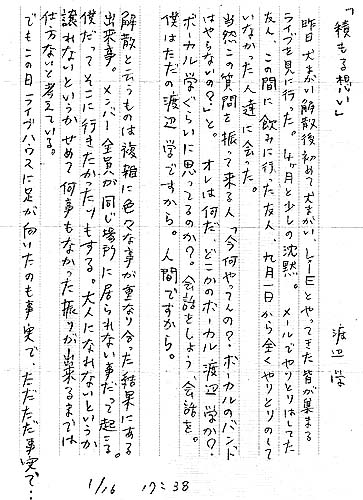 「積もる想い」
渡辺学
昨日 犬まがい解散後初めて犬まがい、レーEとやってきた皆が集まる
ライブを見に行った。4ヶ月と少しの沈黙。メールでやりとりはしてた
友人、この間に飲みに行った友人、九月一日から全くやりとりのして
いなかった人達に会った。
当然この質問を振って来る人「今何やってんの?ボーカルのバンド
はやらないの?」と。オレは何だ、どこかのボーカル渡辺学か?
ボーカル学ぐらいに思ってるのか?会話をしよう、会話を。
僕はただの渡辺学ですから。人間ですから。
解散と云うものは複雑に色々な事が重なり合った結果にある
出来事。メンバー全員が同じ場所に居られない事だって起こる。
僕だってそこに行きたかったッもする。大人になれないというか
譲れないというか せめて何事もなかった振りが出来るまでは
仕方ないと考えている。
でもこの日一ライブハウスに足が向いたのも事実で、ただただ事実で…
1/16 17:38